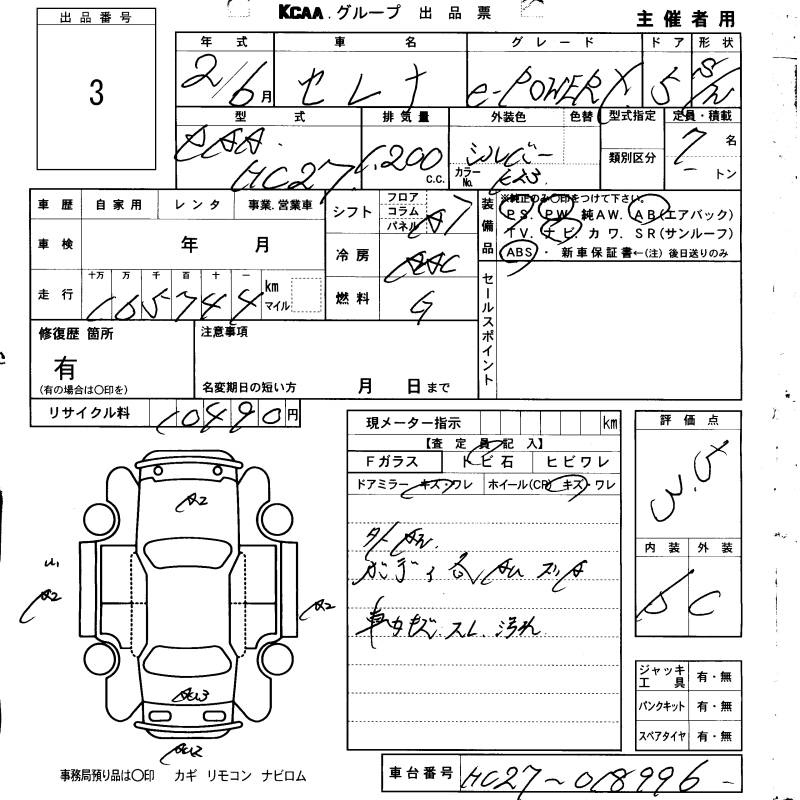 KCAA.グループ 出品票
主催者用
出品番号
3
年式 車名 グレード ドア 形状
2/6月 セレナ e-POWER X 5 S/W
型式 排気量 外装色 色替 型式指定 定員・積載
DAA- HC27 1,200 C.C. シルバー カラーNo. K23 類別区分 7名 トン
車歴 自家用 レンタ 事業.営業車
シフト フロア コラム パネル A7
装備品 ※純正のみ○印をつけて下さい。
PS. PW. 純AW. AB(エアバック)
TV. ナビ. カワ. SR(サンルーフ)
ABS・ 新車保証書←(注)後日送りのみ
車検 年 月
冷房 AAC
走行 十万 万 千 百 十 一
105744 km マイル
燃料 G
セールスポイント
修復歴 箇所
有
(有の場合は○印を)
注意事項
名変期日の短い方 月 日まで
リサイクル料 10490円
現メーター指示 km
【査定員記入】
Fガラス トビ石 ヒビワレ
ドアミラー キズ・ワレ ホイール(CP) キズ・ワレ
外
ボディ 各 AU スリA
車内キズ.スレ.汚れ
評価点
内装 外装
D C
A2
A2
A2
AU3
AU2
ジャッキ工具 有・無
パンクキット 有・無
スペアタイヤ 有・無
事務局預り品は○印 カギ リモコン ナビロム
車台番号 HC27-018996-